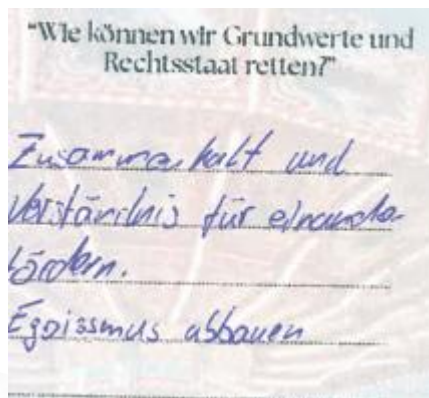 "Wie können wir Grundwerte und
Rechtsstaat retten?"
Zusammenhalt und
Verständnis für einander
fördern.
Egoissmus abbauen